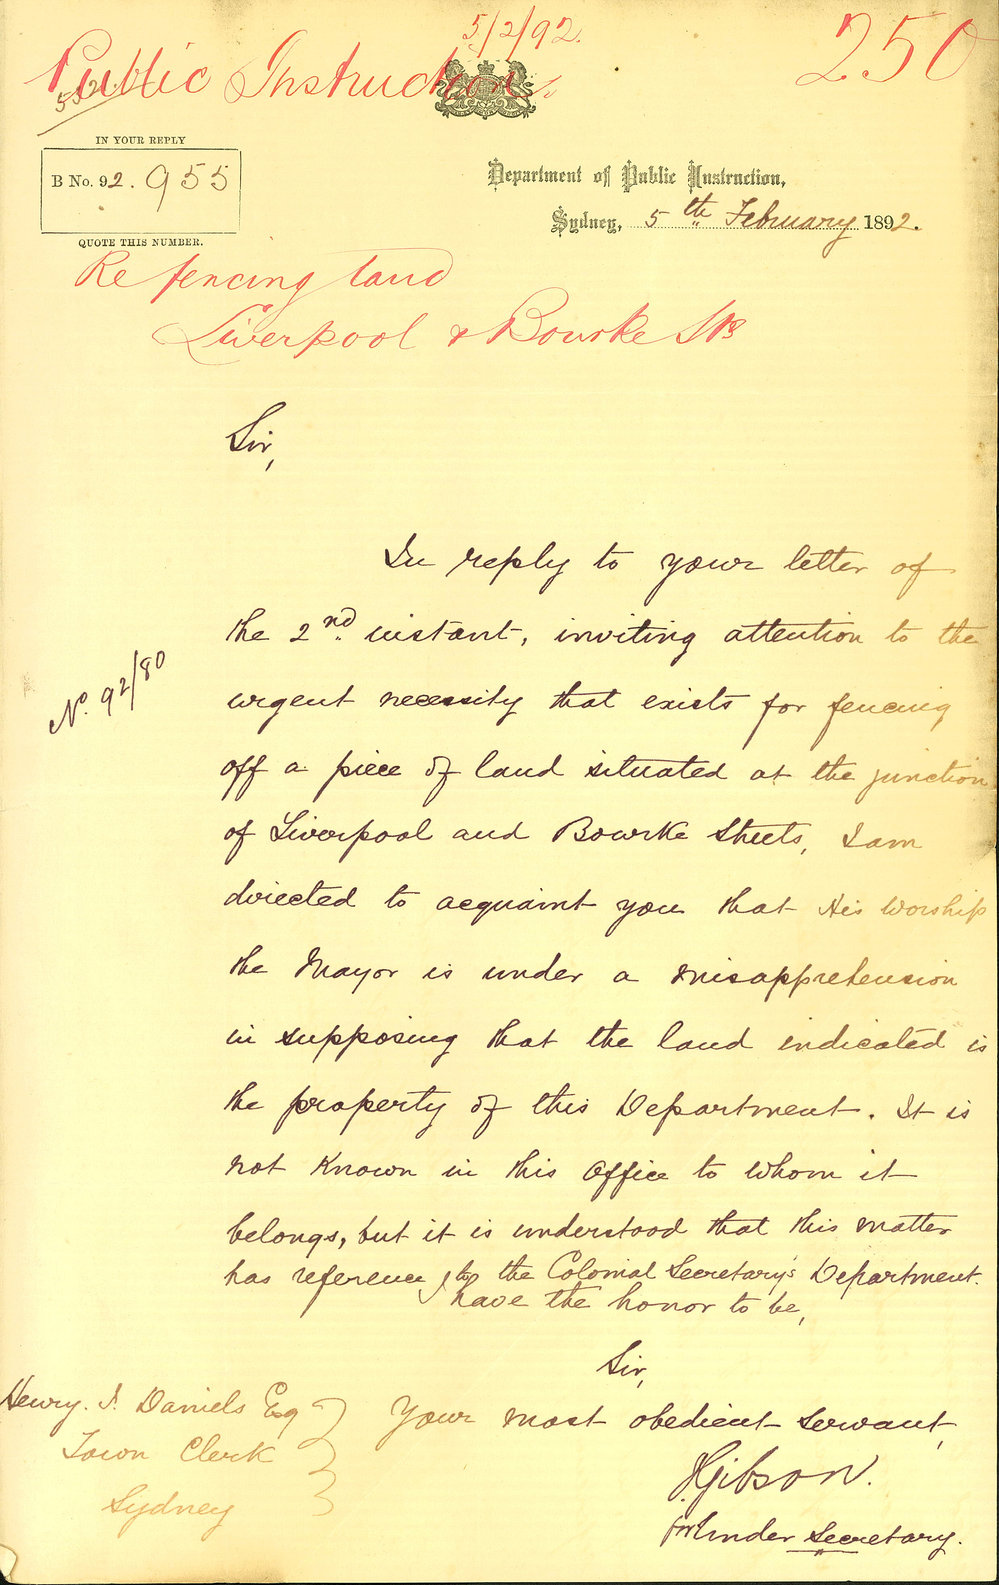 5/2/92.
250
Public Instruction
IN YOUR REPLY
B No. 92. 955
QUOTE THIS NUMBER.
Department of Public Instruction,
Sydney, 5th February 1892.
Re fencing land
Liverpool & Bourke Sts
Sir,
In reply to your letter of
the 2nd instant, inviting attention to the
No. 92/80
urgent necessity that exists for fencing
off a piece of land situated at the junction
of Liverpool and Bourke Streets, I am
directed to acquaint you that His Worship
the Mayor is under a misapprehension
in supposing that the land indicated is
the property of this Department. It is
not known in this Office to whom it
belongs, but it is understood that this matter
has reference to the Colonial Secretary's Department.
I have the honor to be,
Sir,
Your most obedient servant,
J Gibson.
for Under Secretary.
Henry. J. Daniels Esq
Town Clerk
Sydney